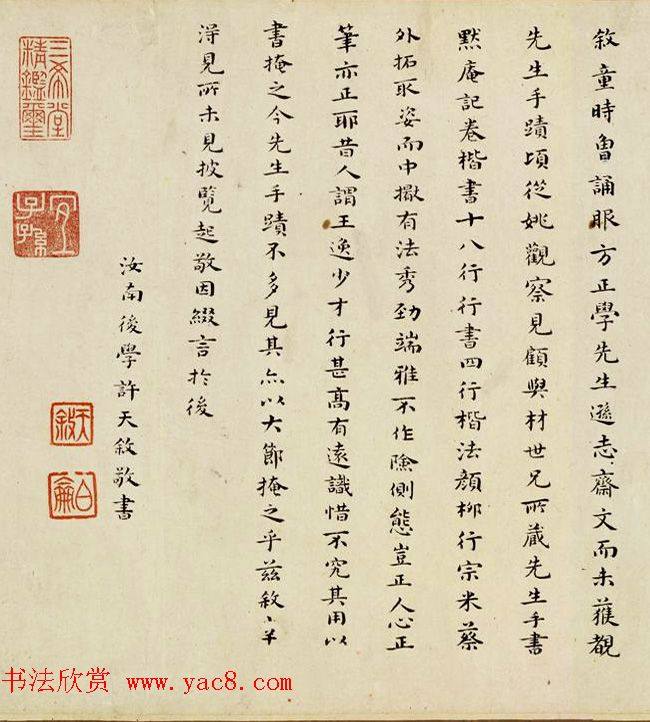 敘童時曾誦眼方正學先生遜志齋文而未獲覩
先生手蹟頃從姚觀察見顧與材世兄所藏先生手書
黙庵記卷楷書十八行行書四行楷法顏柳行宗米蔡
外拓取姿而中擫有法秀勁端雅不作險側態豈正人心正
筆亦正耶昔人謂王逸少才行甚高有遠識惜不究其用以
書掩之今先生手蹟不多見其亦以大節掩之乎兹敘幸
得見所未見披覽起敬因綴言於後
汝南後學許天敘敬書
三希堂精鑑璽
宜子孫
天敘
書法欣赏 www.yac8.com